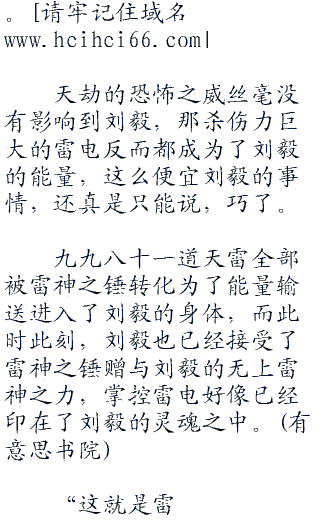 。[请牢记住域名
www.hcihci66.com|
天劫的恐怖之威丝毫没
有影响到刘毅，那杀伤力巨
大的雷电反而都成为了刘毅
的能量，这么便宜刘毅的事
情，还真是只能说，巧了。
九九八十一道天雷全部
被雷神之锤转化为了能量输
送进入了刘毅的身体，而此
时此刻，刘毅也已经接受了
雷神之锤赠与刘毅的无上雷
神之力，掌控雷电好像已经
印在了刘毅的灵魂之中。(有
意思书院)
“这就是雷